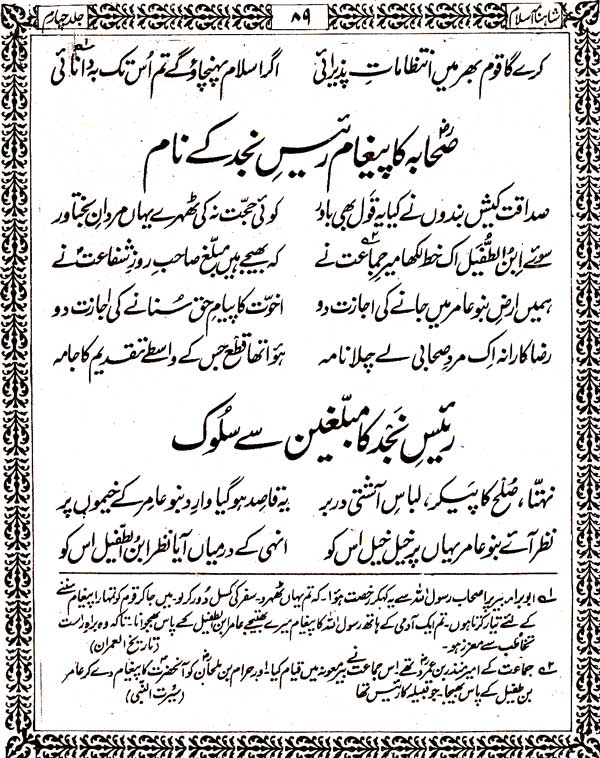 شاہنامہ اسلام ۸۹ جلد چہارم
کرے گا قوم بھر میں انتظاماتِ پذیرائی اگر اسلام پہنچاؤ گے تم اُس تک بہ دانائی
صحابہؓ کا پیغام رئیسِ نجد کے نام
صداقت کیش بندوں نے کیا یہ قول بھی باور کوئی حجت نہ کی ٹھہرے یہاں مردانِ بختاور
سوئے ابنُ الطُّفیل اک خط لکھا میرِ جماعت نے کہ بھیجے ہیں مبلّغ صاحبِ روزِ شفاعت نے
ہمیں ارضِ بنو عامر میں جانے کی اجازت دو اخوّت کا پیامِ حق سُنانے کی اجازت دو
رضاکارانہ اِک مردِ صحابی لے چلا نامہ ہوا تھا قطع جس کے واسطے تقدیم کا جامہ
رئیسِ نجد کا مبلّغین سے سلُوک
نہتّا، صُلح کا پیکر، لباسِ آشتی در بر یہ قاصد ہو گیا وارد بنو عامر کے خیموں پر
نظر آئے بنو عامر یہاں پر خیل خیل اس کو انہی کے درمیاں آیا نظر ابنُ الطّفیل اس کو
۱؎ ابو براء بئیر پر اصحاب رسول اللہ سے یہ کہہ کر رخصت ہوا۔ کہ تم یہاں ٹھہرو۔ سفر کی کسل دُور کرو۔ میں جا کر قوم کو تمہارا پیغام سننے
کے لئے تیار کرتا ہوں۔ تم ایک آدمی کے ہاتھ رسول اللہ کا پیغام میرے بھتیجے عامر ابن الطفیل کے پاس بھجوانا۔ تاکہ وہ براہ راست
تخاطب سے معزز ہو۔ (تاریخ العمران)
۲؎ جماعت کے امیر منذر بن عمرؓو تھے۔ اس جماعت نے بیرِ معونہ میں قیام کیا۔ اور حرام بن ملحانؓ کو آنحضرتؐ کا پیغام دے کر عامر
بن طفیل کے پاس بھیجا۔ جو قبیلہ کا رئیس تھا (سیرت النبی)